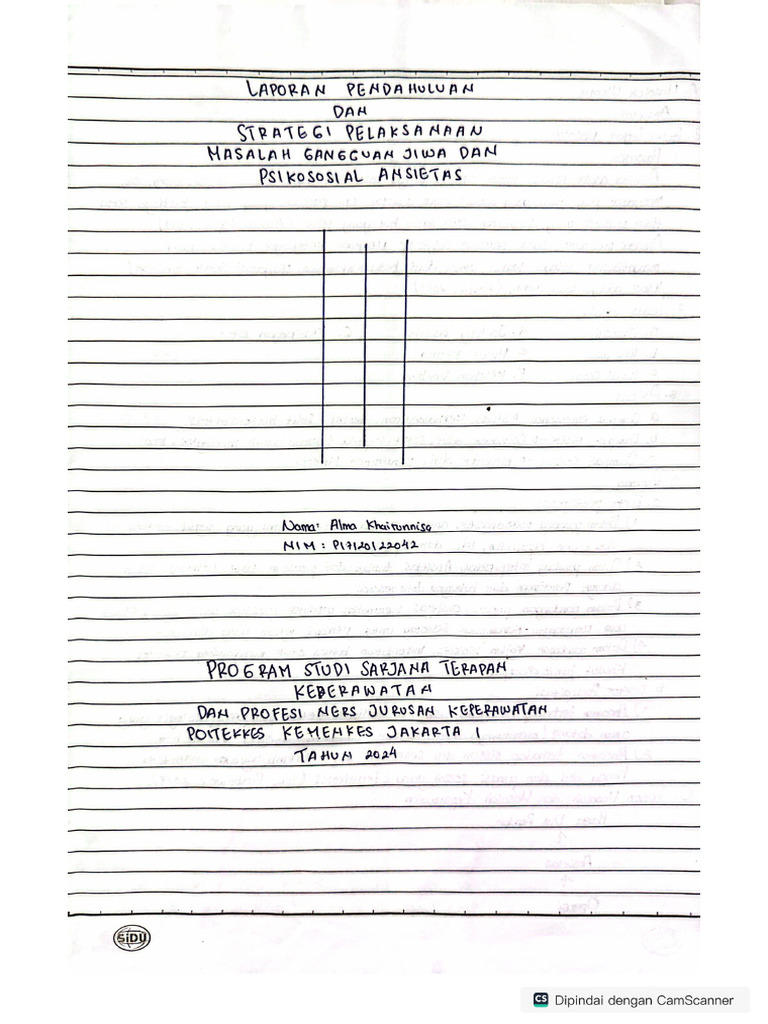 LAPORAN PENDAHULUAN
DAN
STRATEGI PELAKSANAAN
MASALAH GANGGUAN JIWA DAN
PSIKOSOSIAL ANSIETAS
Nama: Alma Khairunnisa
NIM : P17120122042
PROGRAM STUDI SARJANA TERAPAN
KEBERAWATAN
DAN PROFESI NERS JURUSAN KEPERAWATAN
POLTEKKES KEMENKES JAKARTA I
TAHUN 2024
SiDU
CS Dipindai dengan CamScanner